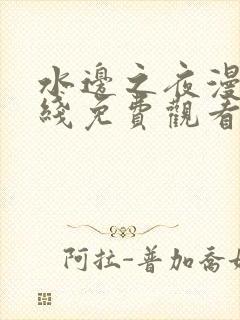 水邊之夜漫
綫免費觀看
阿拉-普加喬